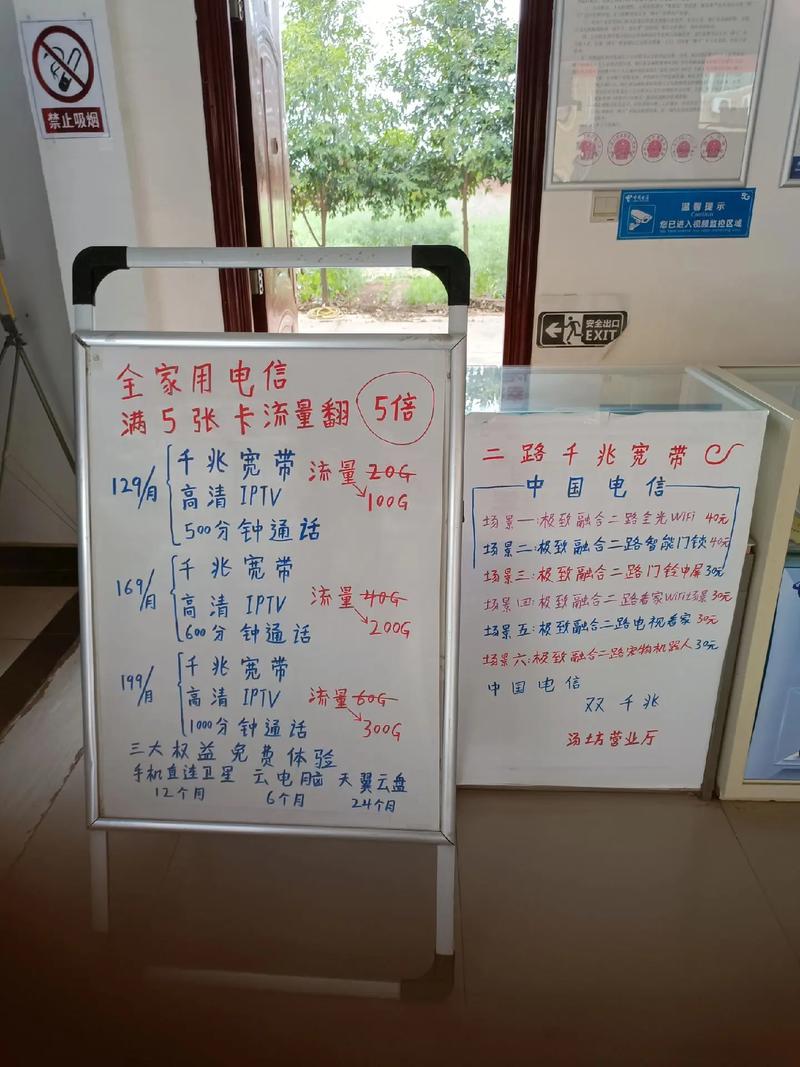 禁止吸烟
中国电信
5G
温馨提示
Caution
您已进入视频监控区域
安全出口
EXIT
全家用电信
满5张卡流量翻 5倍
129/月
千兆宽带 流量 20G
高清 IPTV 100G
500分钟通话
169/月
千兆宽带
高清 IPTV 流量 40G
600分钟通话 200G
199/月
千兆宽带
高清 IPTV 流量 60G
1000分钟通话 300G
三大权益免费体验
手机直连卫星 云电脑 天翼云盘
12个月 6个月 24个月
二路千兆宽带
中国电信
场景一:极致融合二路全光WiFi 40元
场景二:极致融合二路智能门锁 40元
场景三:极致融合二路门铃中屏 30元
场景四:极致融合二路看家WiFi场景 30元
场景五:极致融合二路电视看家 30元
场景六:极致融合二路宠物机器人 30元
中国电信
双千兆
汤坊营业厅